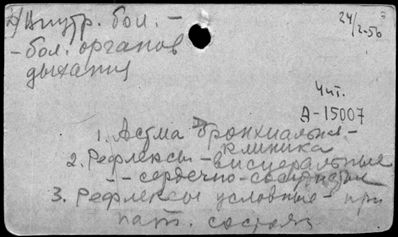 д/Внутр. бол. -
24/2-50
- бол. органов
дыхания
Чит.
А-15007
1. Астма бронхиальная -
клиника
2. Рефлексы - висцеральные
- - сердечно-сосудистые
3. Рефлексы условные - при
пат. состоян